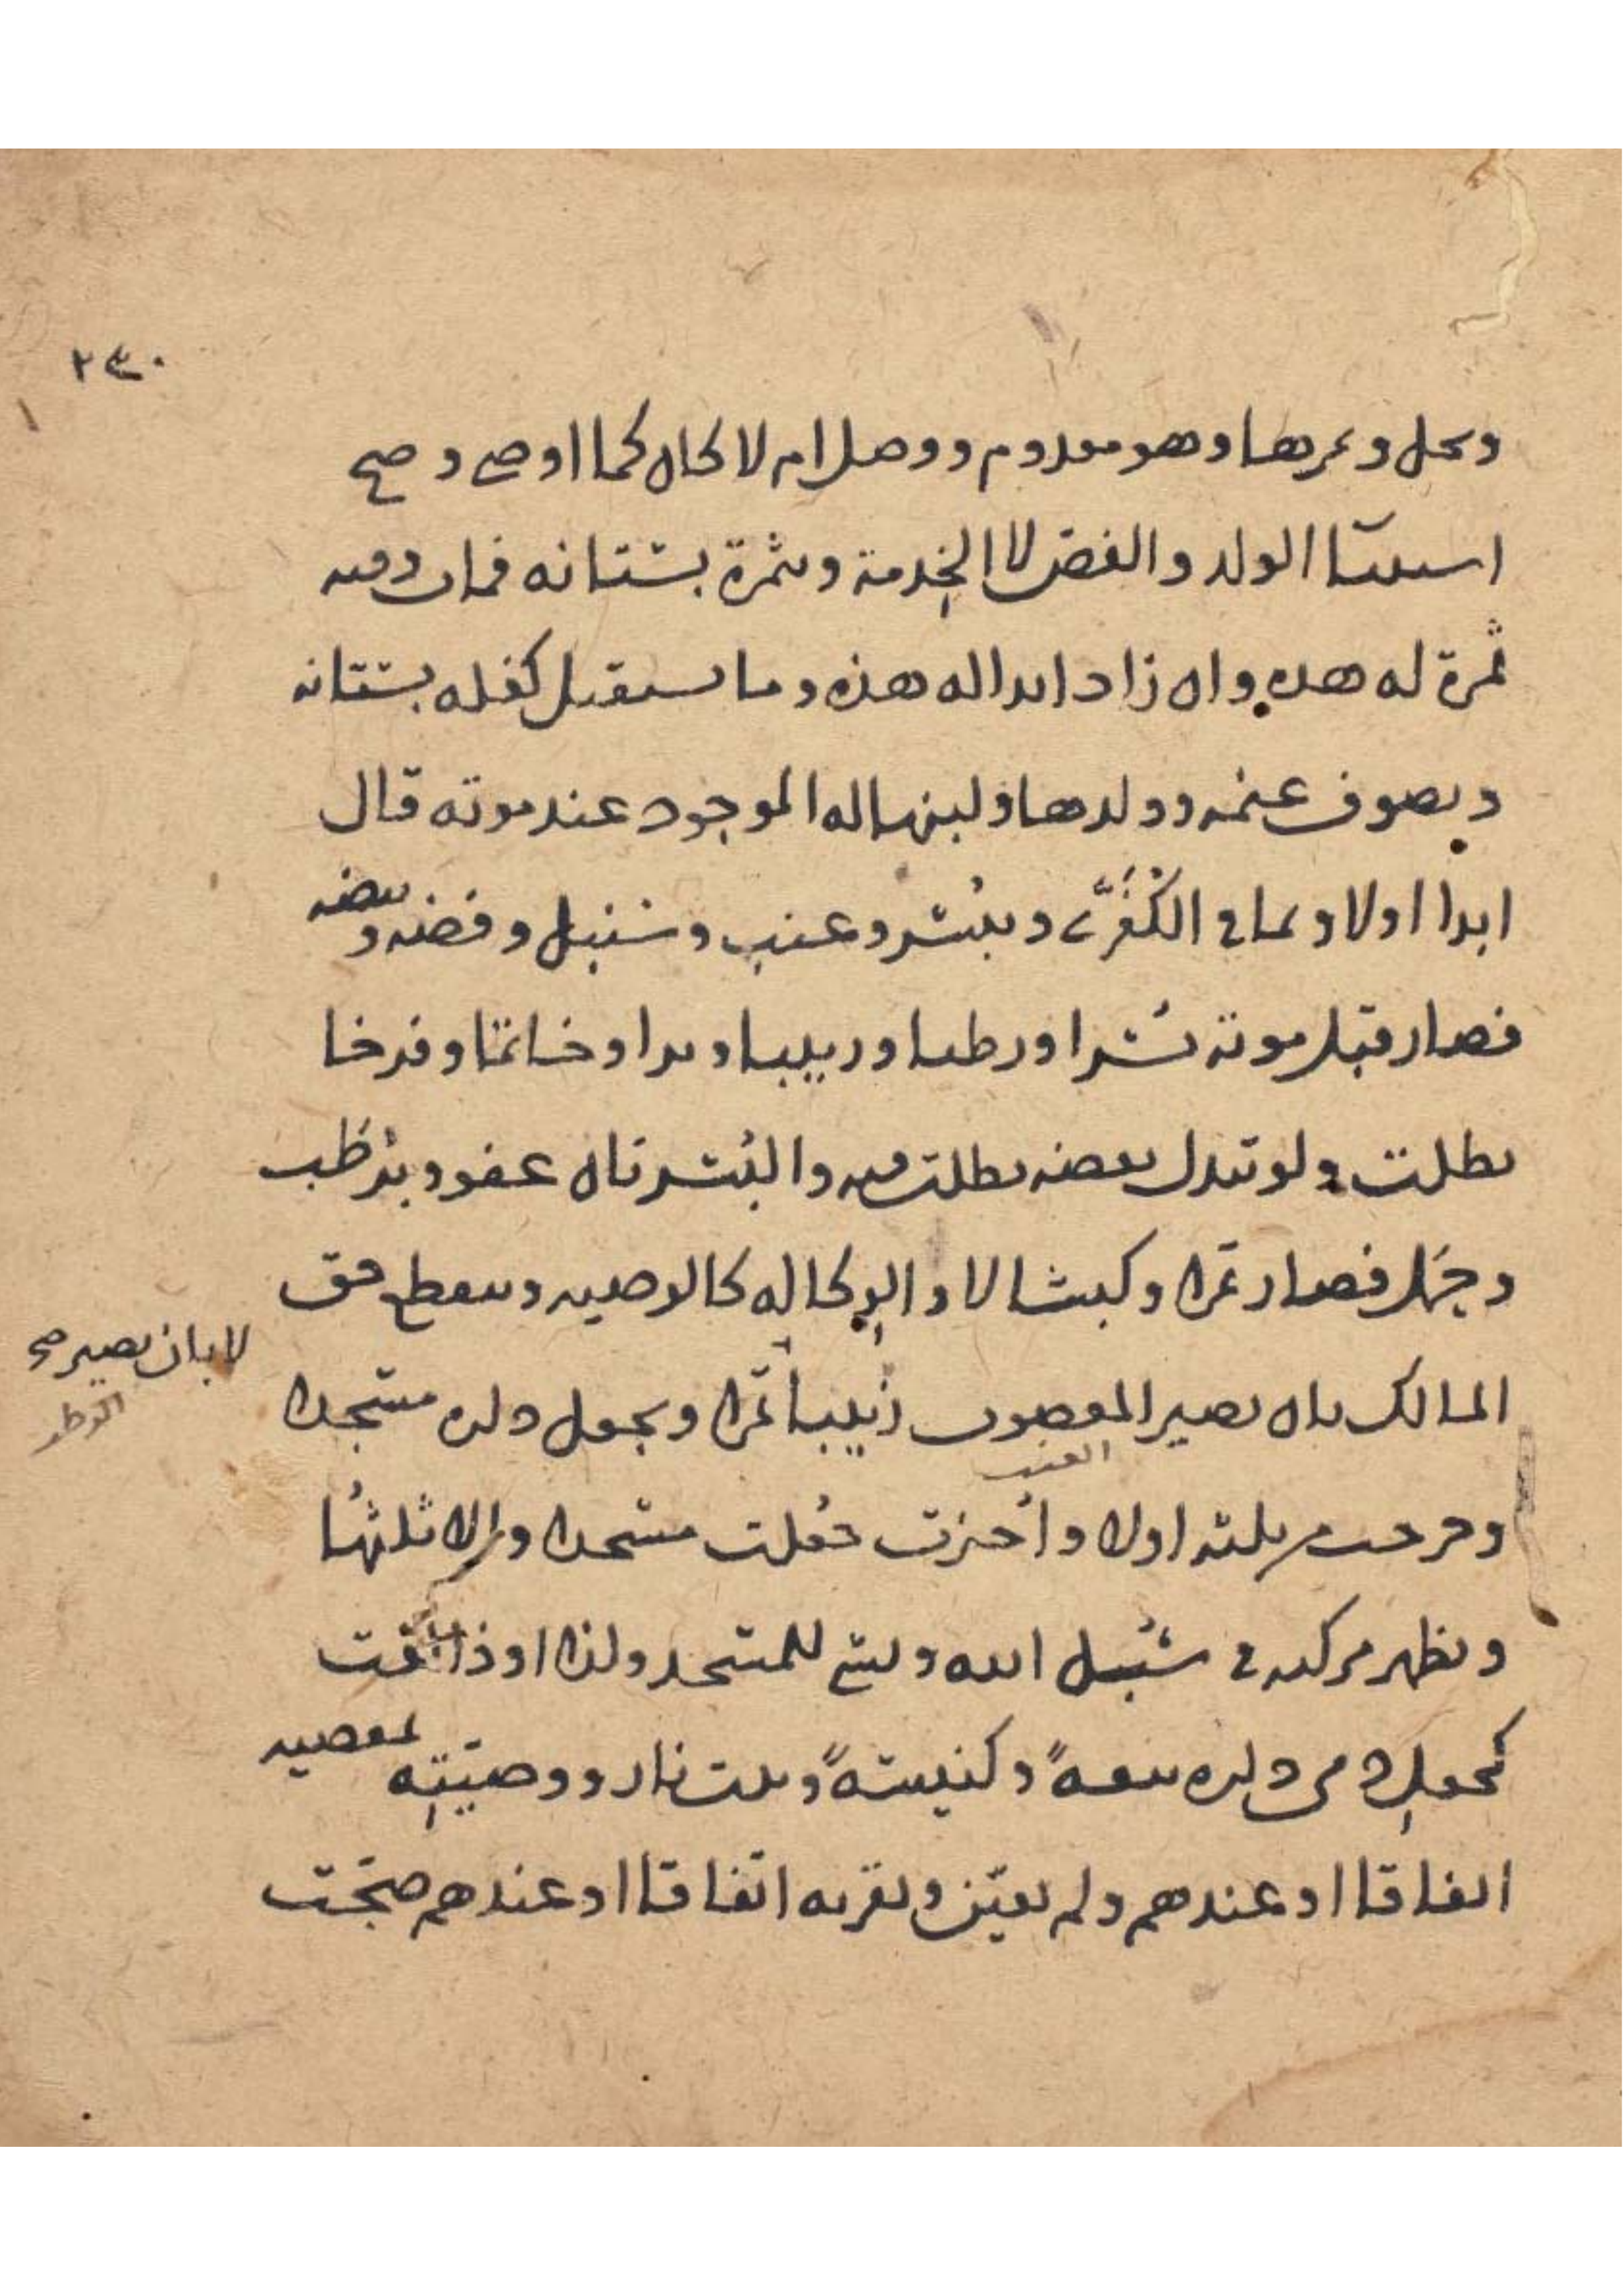 ٢٣٠
ونحل وغرها وهو معدوم ووصل ام لا كان كما اوصى وصح
استثنا الولد والفص لا الخدمة وبثمرة بستانه فمات وفيه
ثمرة له هذه وان زاد ابدا له هذه وما يستقبل كغلة بستانه
وبصوف غنمه وولدها ولبنها له الموجود عند موته قال
ابدا اولا وبما في الكُفُرَّى وببُسر وعنب وسنبل وفضة وبيضه
فصار قبل موته بُسرا ورطبا وزبيبا وبرا وخاتما وفرخا
بطلت ولو تبدل بعضه بطلت فيه والبُسر بان عفو وبرطب
وحمل فصار تمرا وكبشا لا والوكالة كالوصيه وينقطع حق
المالك بان يصير المغصوب زبيبا تمرا وبجعل داره مسجدا
العنب
لا بان يصير صح
الرطب
وخرجت من ثلثه اولا واُجيزت جُعلت مسجدا والا ثلثها
وبظهر مركبه في سُبُل الله وليس للمسجد ولذا اوذا بقت
كجعل ذمي داره بيعةً وكنيسةً وبيت نار ووصيّتِه بمعصيه
اتفاقا او عندهم ولم يعيّن وبقربه اتفاقا او عندهم صحّت